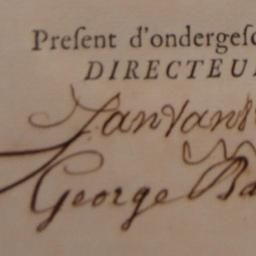 Preſent d'ondergeſc
DIRECTEU
Jan van
George Ba